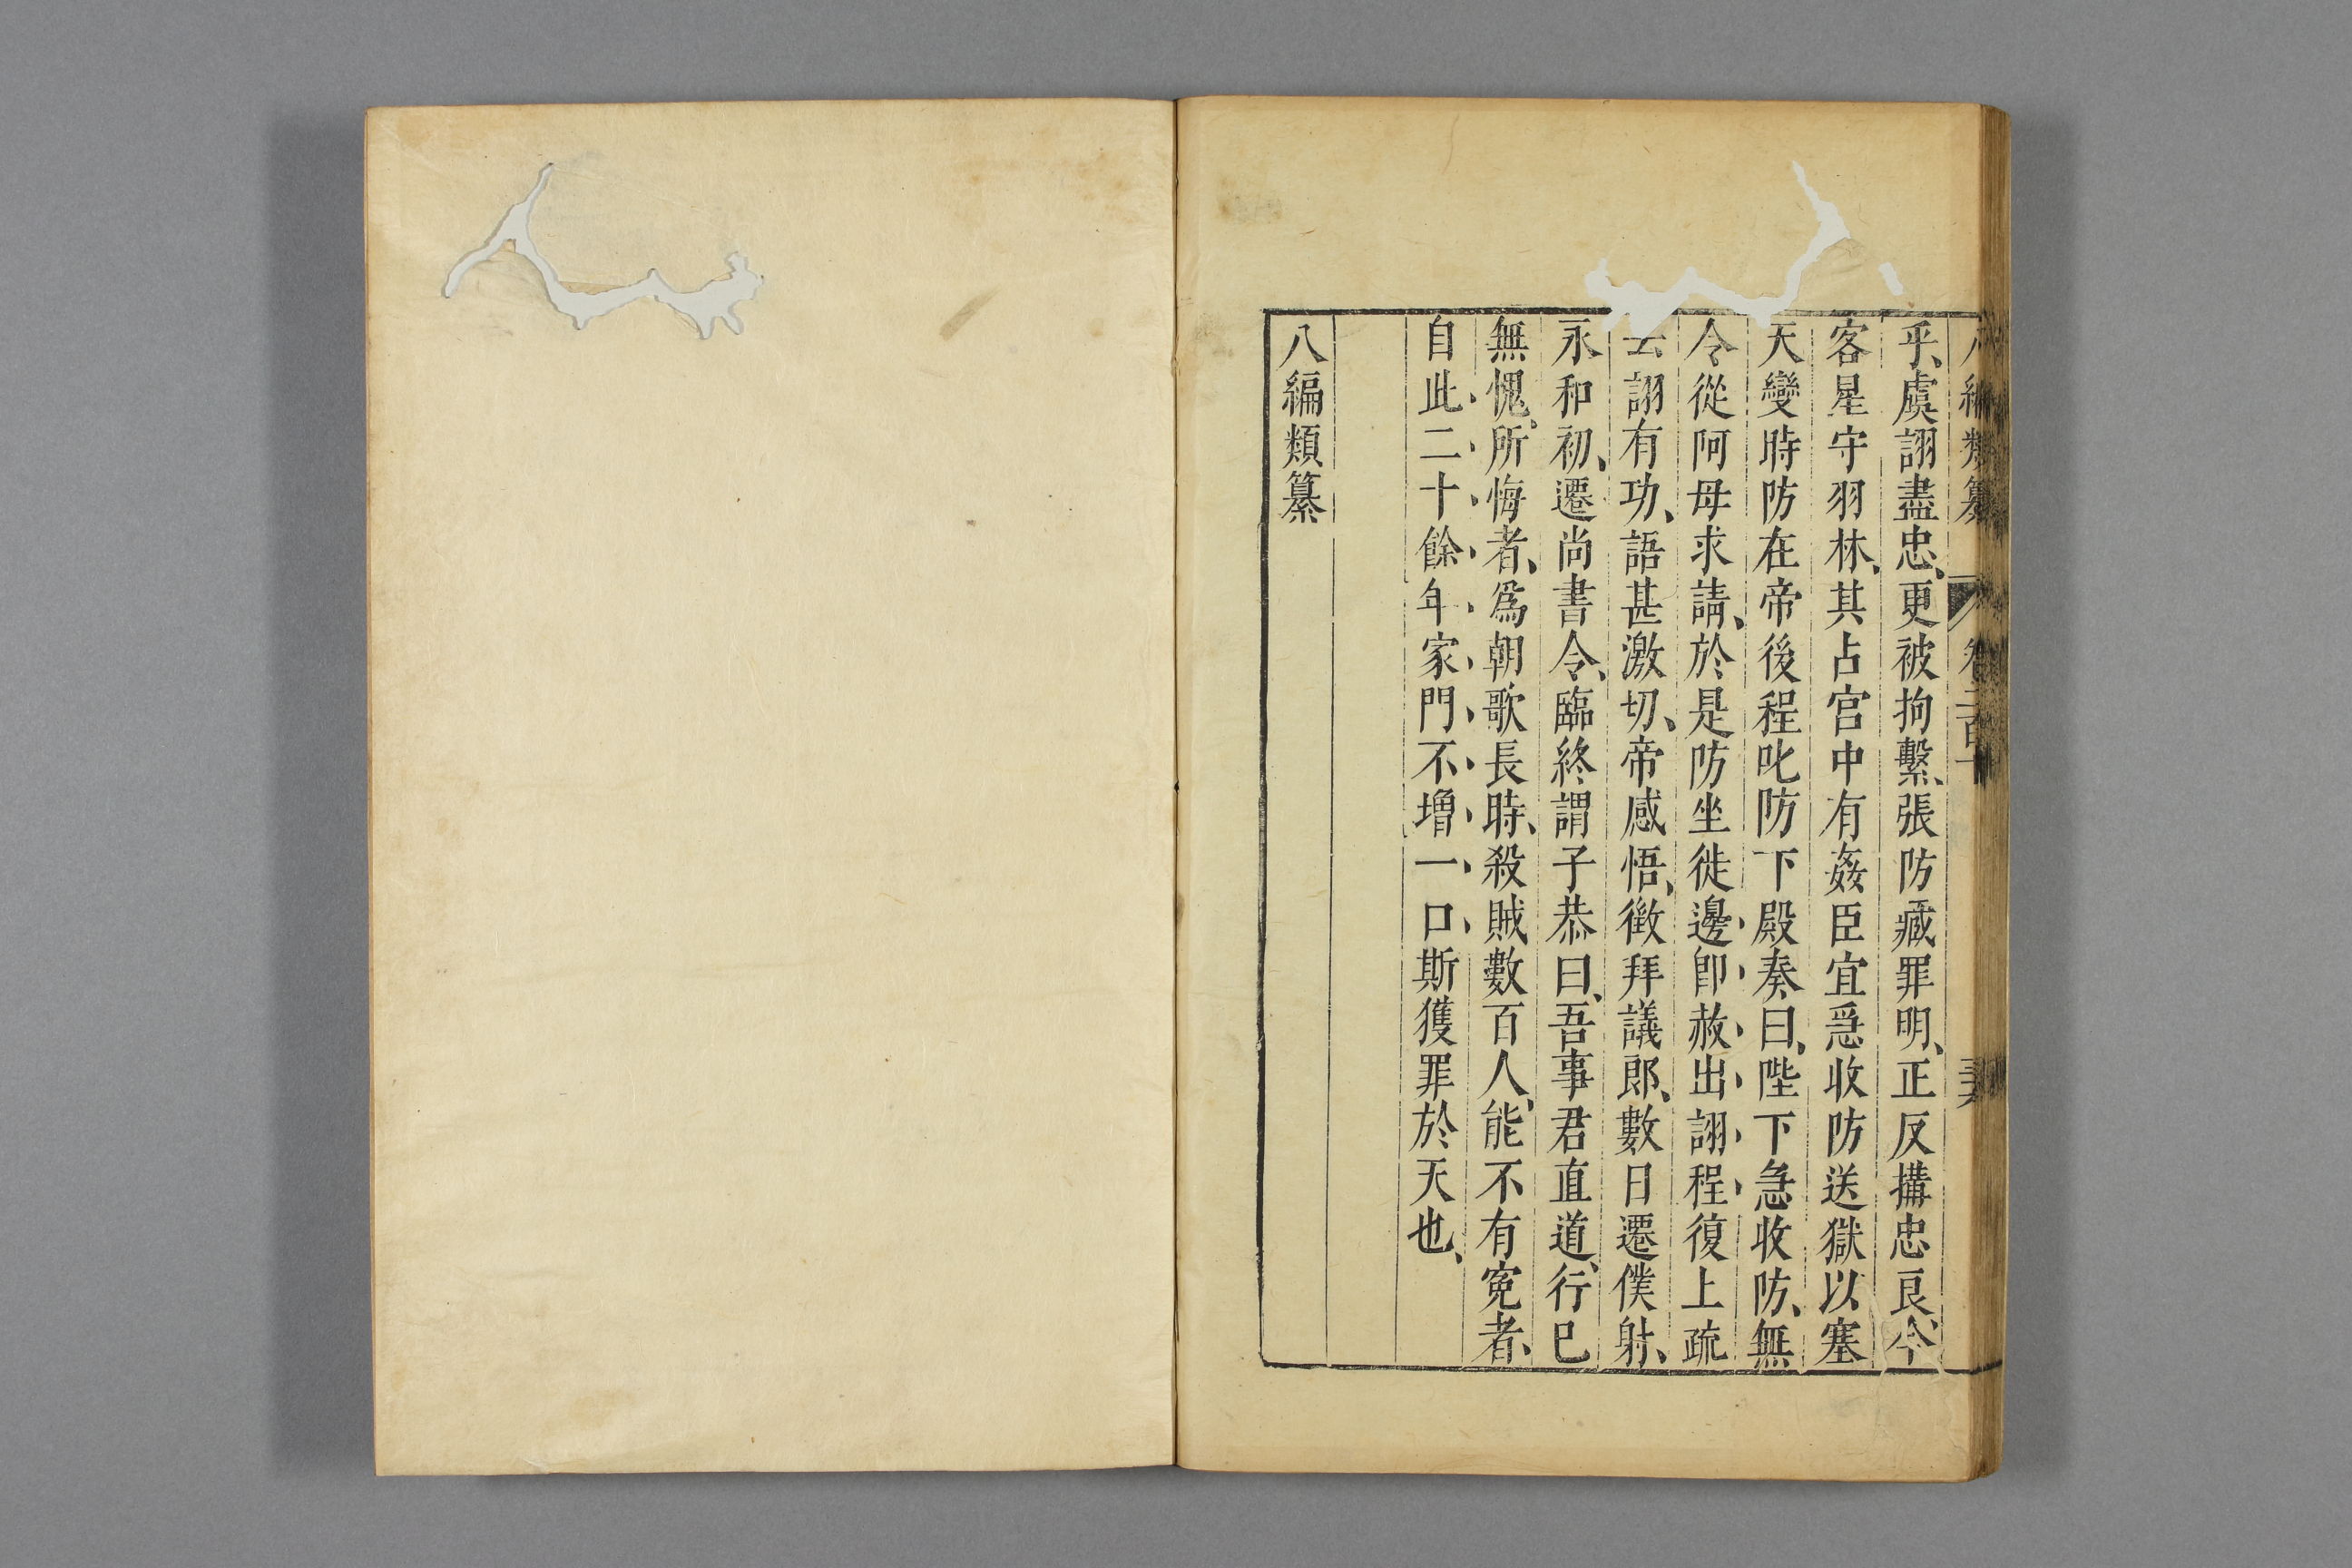 八編類纂 卷二百十
乎、虞詡盡忠、更被拘繫、張防臧罪明、正反搆忠良、今
客星守羽林、其占宫中有姦臣宜急收防送獄以塞
天變時防在帝後程叱防下殿奏曰、陛下急收防、無
令從阿母求請、於是防坐徙邊即赦出詡程復上疏
言詡有功、語甚激切、帝感悟、徵拜議郎、數日遷僕射、
永和初、遷尚書令、臨終謂子恭曰、吾事君直道、行巳
無愧、所悔者、爲朝歌長時、殺賊數百人、能不有寃者、
自此二十餘年家門不增一口斯獲罪於天也、
八編類纂